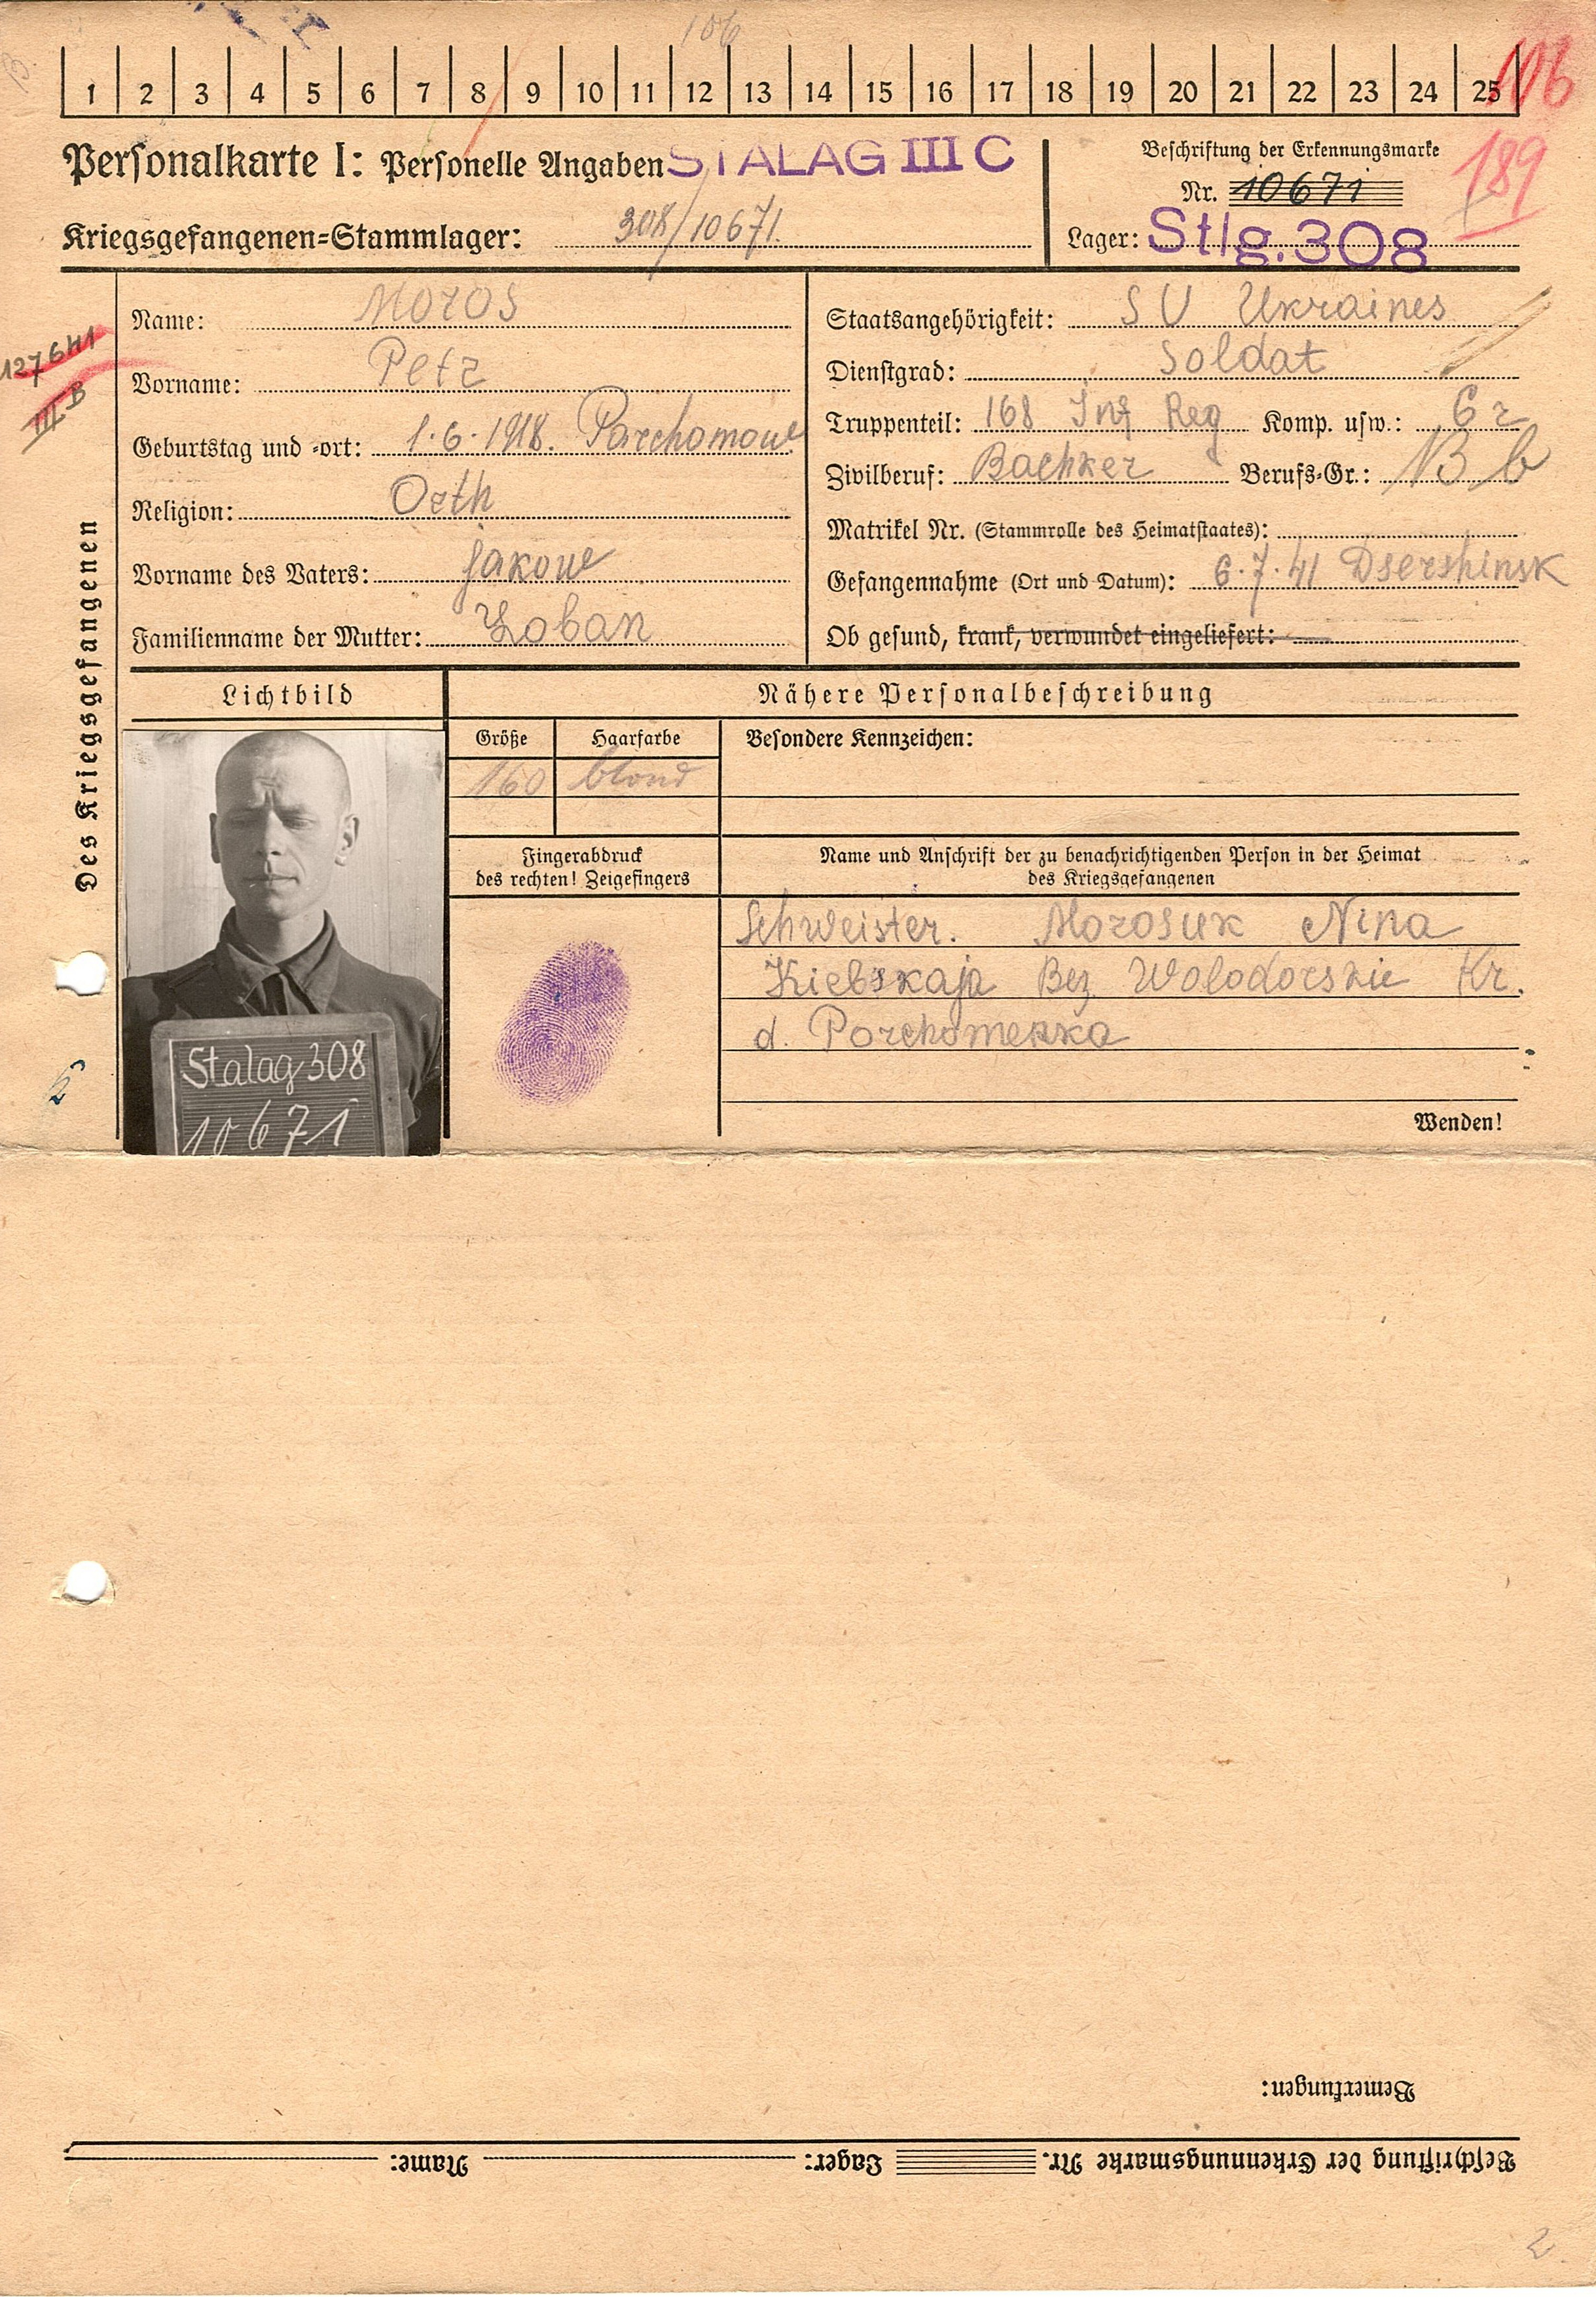 106
1 2 3 4 5 6 7 8 9 10 11 12 13 14 15 16 17 18 19 20 21 22 23 24 25
106
Personalkarte I: Personelle Angaben STALAG III C
Beschriftung der Erkennungsmarke
189
Nr. 10671
Kriegsgefangenen=Stammlager: 308/10671.
Lager: Stlg. 308
Des Kriegsgefangenen
127641
III B
Name: Moros
Vorname: Petr
Geburtstag und =ort: 1.6.1918. Parchomow
Religion: Orth
Vorname des Vaters: Jakow
Familienname der Mutter: Loban
Staatsangehörigkeit: SU Ukraines
Dienstgrad: Soldat
Truppenteil: 168 Inf Reg Komp. usw.: 6 r
Zivilberuf: Bachker Berufs=Gr.: B b
Matrikel Nr. (Stammrolle des Heimatstaates):
Gefangennahme (Ort und Datum): 6.7.41 Dsershinsk
Ob gesund, krank, verwundet eingeliefert:
Lichtbild
Nähere Personalbeschreibung
Größe Haarfarbe Besondere Kennzeichen:
160 blond
Fingerabdruck
des rechten! Zeigefingers
Name und Anschrift der zu benachrichtigenden Person in der Heimat
des Kriegsgefangenen
Schweister. Morosuk Nina
Kiebskaja Bez Wolodorskie Kr.
d. Porchomenka
Stalag 308
10671
Wenden!
Bemerkungen:
Beschriftung der Erkennungsmarke Nr. Lager: Name:
2